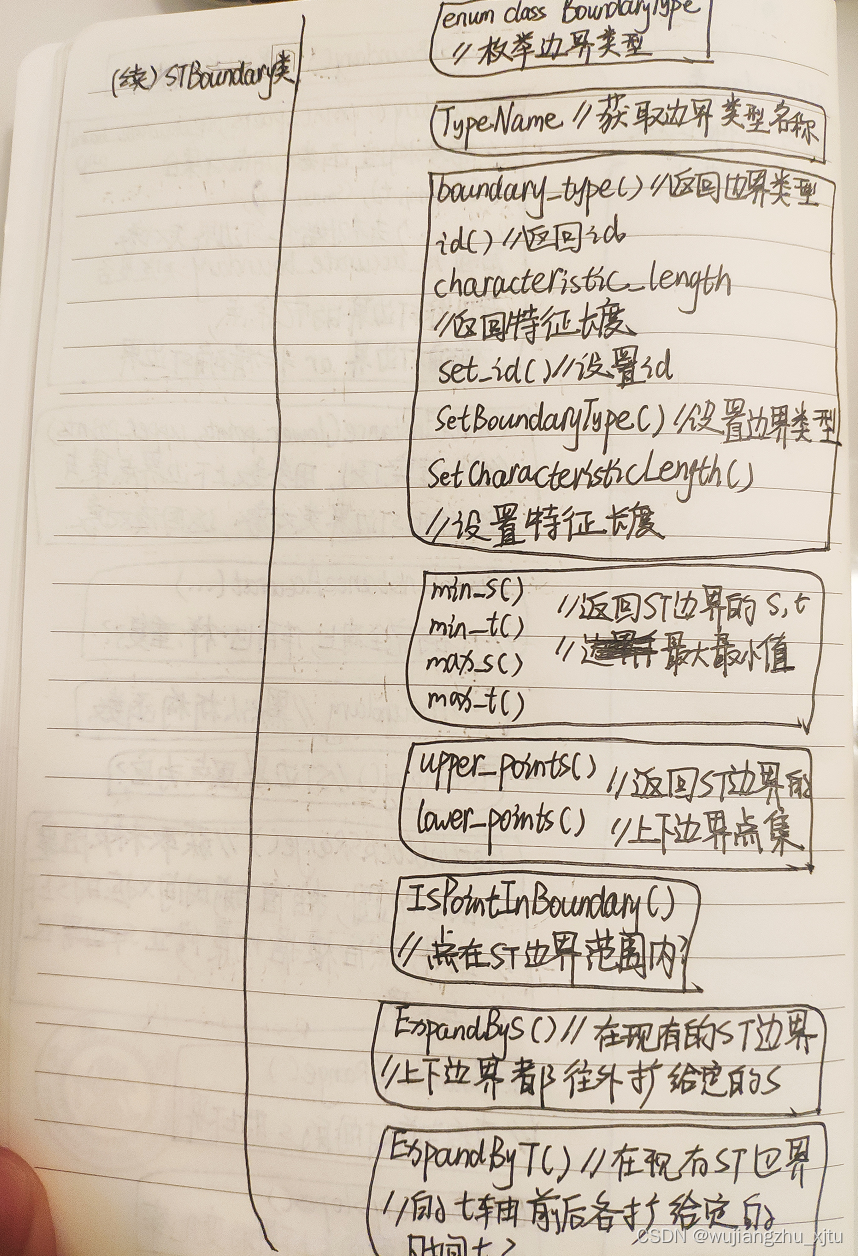 (续) STBoundary类
enum class BoundaryType
// 枚举边界类型
TypeName // 获取边界类型名称
boundary_type() //返回边界类型
id() //返回id
characteristic_length
//返回特征长度
set_id() //设置id
SetBoundaryType() //设置边界类型
SetCharacteristicLength()
//设置特征长度
min_s() //返回ST边界的 s,t
min_t() // 最大最小值
max_s()
max_t()
upper_points() //返回ST边界的
lower_points() //上下边界点集
IsPointInBoundary()
// 点在ST边界范围内?
ExpandByS() // 在现有的ST边界
//上下边界都往外扩给定的S
ExpandByT() //在现有ST边界
//的t轴由前后各扩给定的
时间t?
CSDN @wujiangzhu_xjtu